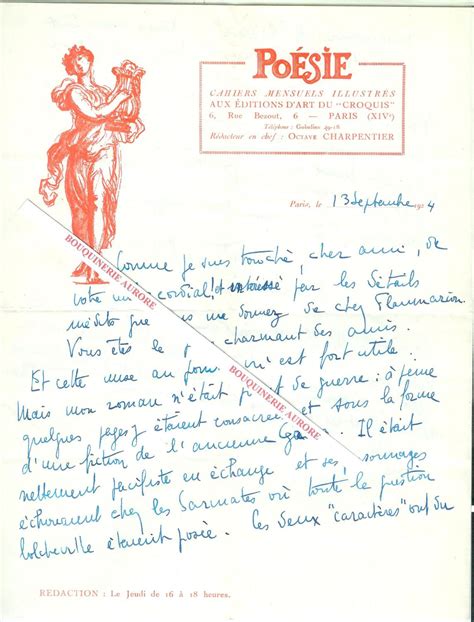 POÉSIE
CAHIERS MENSUELS ILLUSTRÉS
AUX ÉDITIONS D'ART DU "CROQUIS"
6, Rue Bezout, 6 — PARIS (XIVe)
Téléphone : Gobelins 49-18
Rédacteur en chef : Octave CHARPENTIER
Paris, le 13 Septembre 1924
Comme je suis touché, cher ami, de
votre mot cordial! et intéressé par les détails
inédits que vous me donnez de chez Flammarion
Vous êtes le charmant des amis.
Et cette mise au point m'est fort utile.
Mais mon roman n'était de guerre : à peine
quelques pages étaient consacrées et sous la forme
d'une fiction de l'ancienne Il était
nettement pacifiste en échange et ses
chez les Sarmates où toute la question
était posée. Ces deux "caractères" ont dû
BOUQUINERIE AURORE
BOUQUINERIE AURORE
REDACTION : Le Jeudi de 16 à 18 heures.